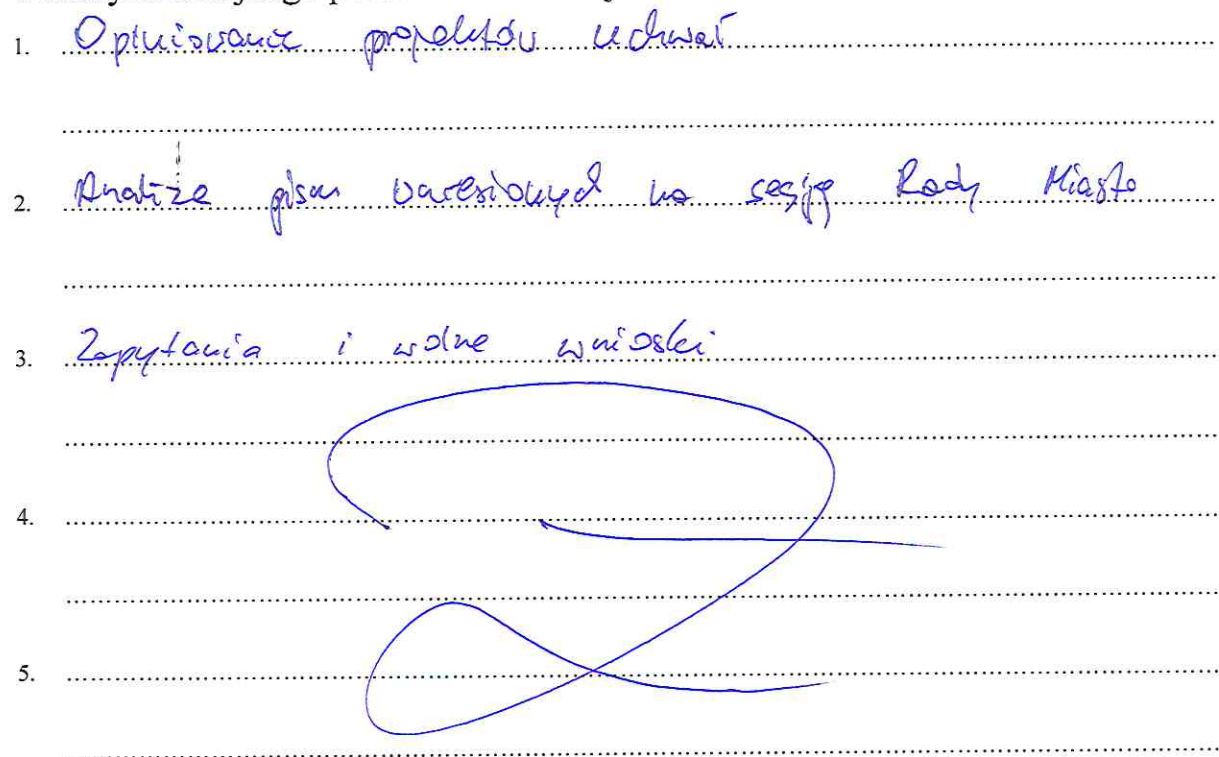 1. Opiniowanie projektów uchwał
2. Analiza pism wniesionych na sesję Rady Miasta
3. Zapytania i wolne wnioski
4.
5.